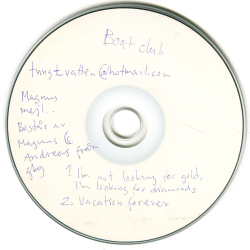 Boat club
tungtvatten@hotmail.com
Magnus
mejl...
Består av
Magnus &
Andreas från
gbg
1. I'm not looking for gold,
I'm looking for diamonds
2. Vacation forever